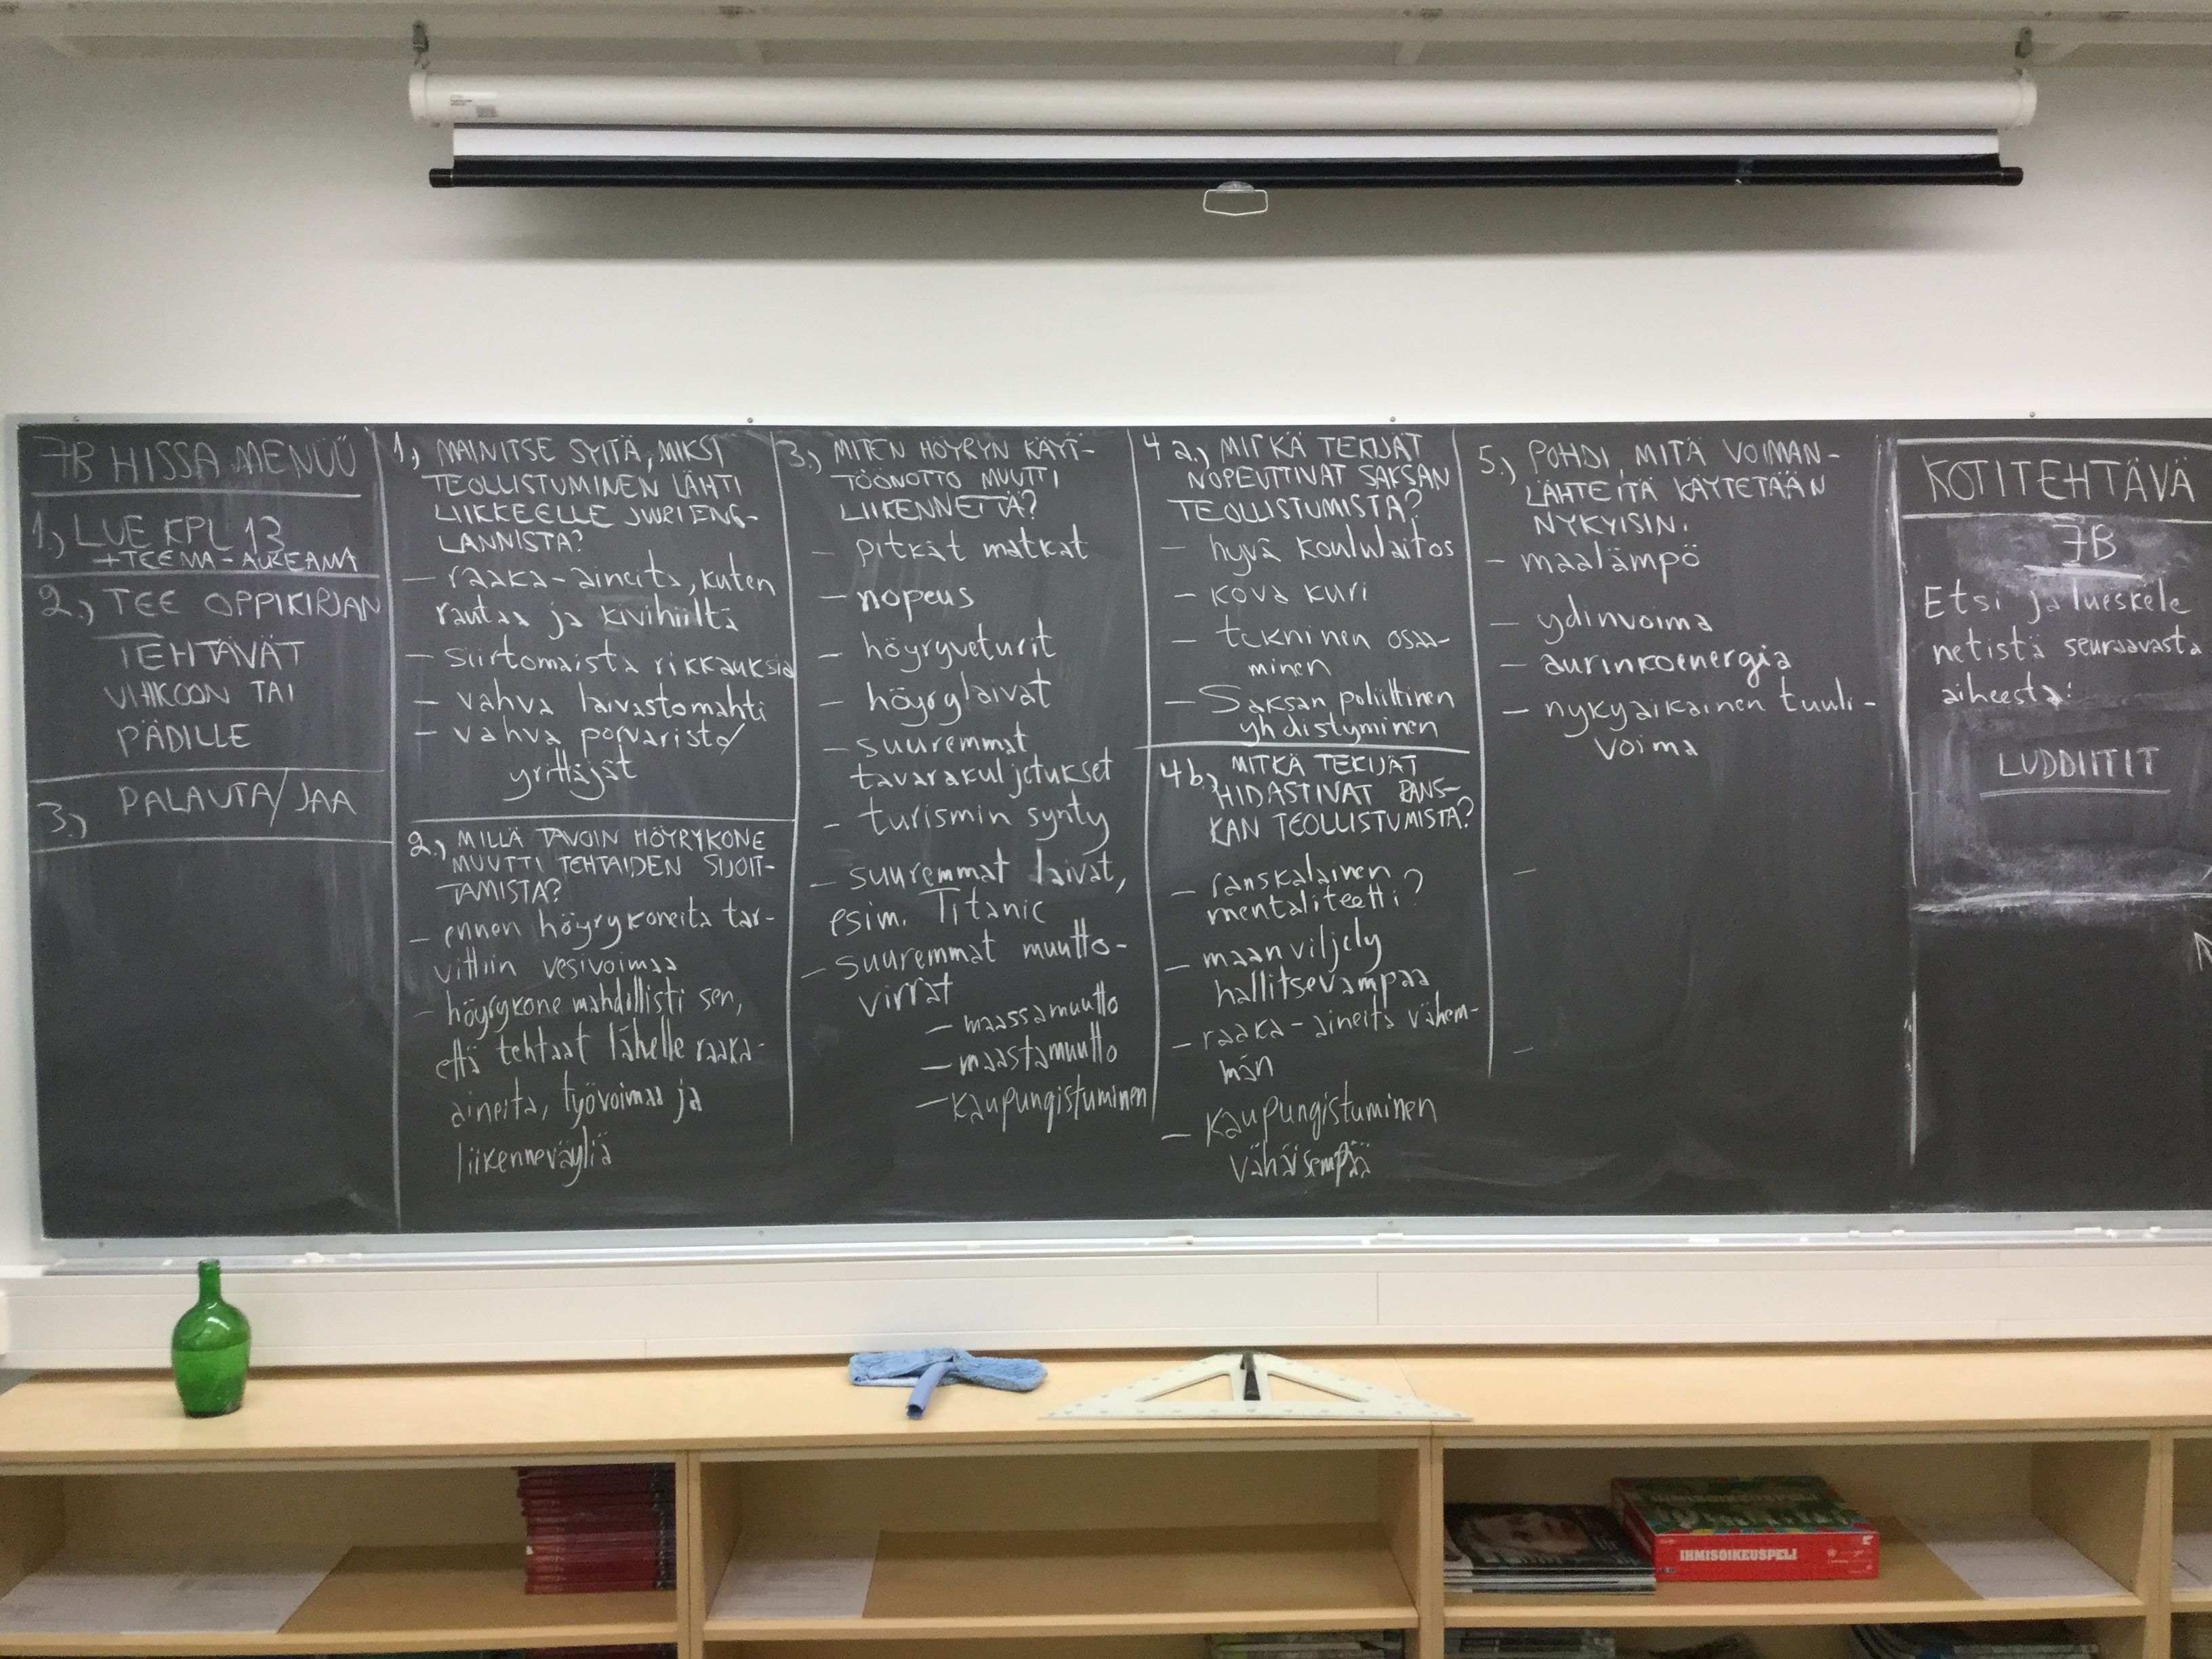 7B HISSA MENÜÜ
1.) LUE KPL 13
+TEEMA-AUKEAMA
2.) TEE OPPIKIRJAN
TEHTÄVÄT
VIHKOON TAI
PÄDILLE
3.) PALAUTA/JAA
1.) MAINITSE SYITÄ, MIKSI
TEOLLISTUMINEN LÄHTI
LIIKKEELLE JUURI ENG-
LANNISTA?
- raaka-aineita, kuten
rautaa ja kivihiiltä
- siirtomaista rikkauksia
- vahva laivastomahti
- vahva porvaristo/
yrittäjät
2.) MILLÄ TAVOIN HÖYRYKONE
MUUTTI TEHTAIDEN SIJOIT-
TAMISTA?
- ennen höyrykoneita tar-
vittiin vesivoimaa
- höyrykone mahdillisti sen,
että tehtaat lähelle raaka-
aineita, työvoimaa ja
liikenneväyliä
3.) MITEN HÖYRYN KÄYT-
TÖÖNOTTO MUUTTI
LIIKENNETTÄ?
- pitkät matkat
- nopeus
- höyryveturit
- höyrylaivat
- suuremmat
tavarakuljetukset
- turismin synty
- suuremmat laivat,
esim. Titanic
- suuremmat muutto-
virrat
- maassamuutto
- maastamuutto
- kaupungistuminen
4 a.) MITKÄ TEKIJÄT
NOPEUTTIVAT SAKSAN
TEOLLISTUMISTA?
- hyvä koululaitos
- kova kuri
- tekninen osaa-
minen
- Saksan poliittinen
yhdistyminen
4 b.) MITKÄ TEKIJÄT
HIDASTIVAT RANS-
KAN TEOLLISTUMISTA?
- ranskalainen
mentaliteetti?
- maanviljely
hallitsevampaa
- raaka-aineita vähem-
män
- kaupungistuminen
vähäisempää
5.) POHDI, MITÄ VOIMAN-
LÄHTEITÄ KÄYTETÄÄN
NYKYISIN.
- maalämpö
- ydinvoima
- aurinkoenergia
- nykyaikainen tuuli-
voima
-
-
KOTITEHTÄVÄ
7B
Etsi ja lueskele
netistä seuraavasta
aiheesta:
LUDDIITIT
IHMISOIKEUSPELI